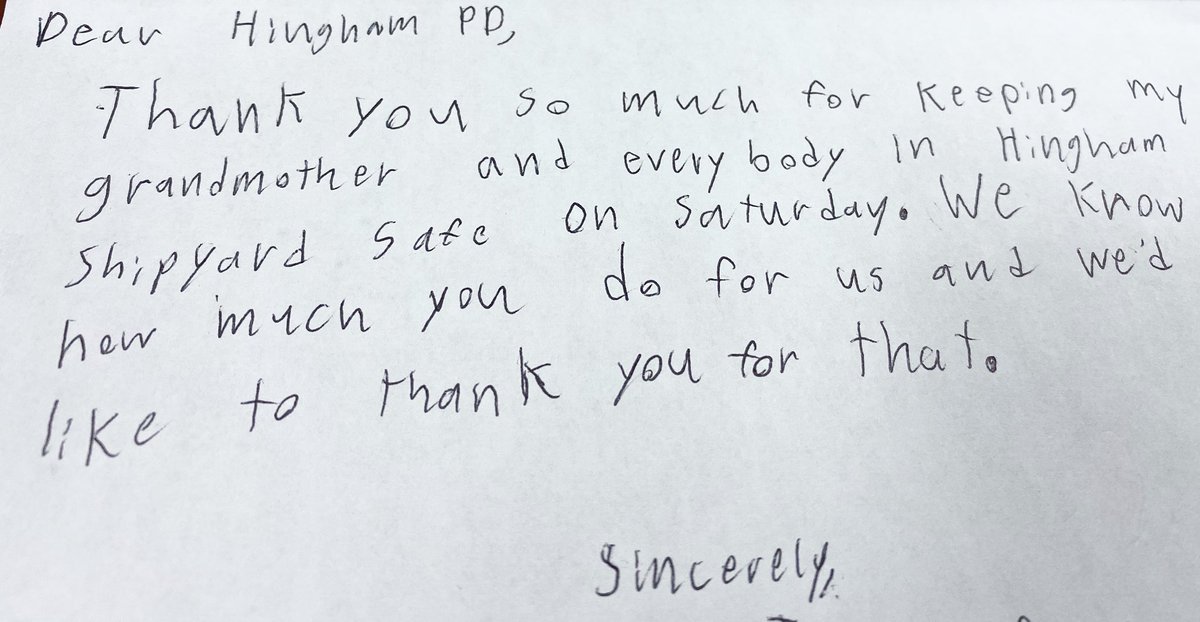 Dear Hingham PD,
Thank you so much for keeping my
grandmother and everybody in Hingham
Shipyard safe on Saturday. We know
how much you do for us and we'd
like to thank you for that.
Sincerely,